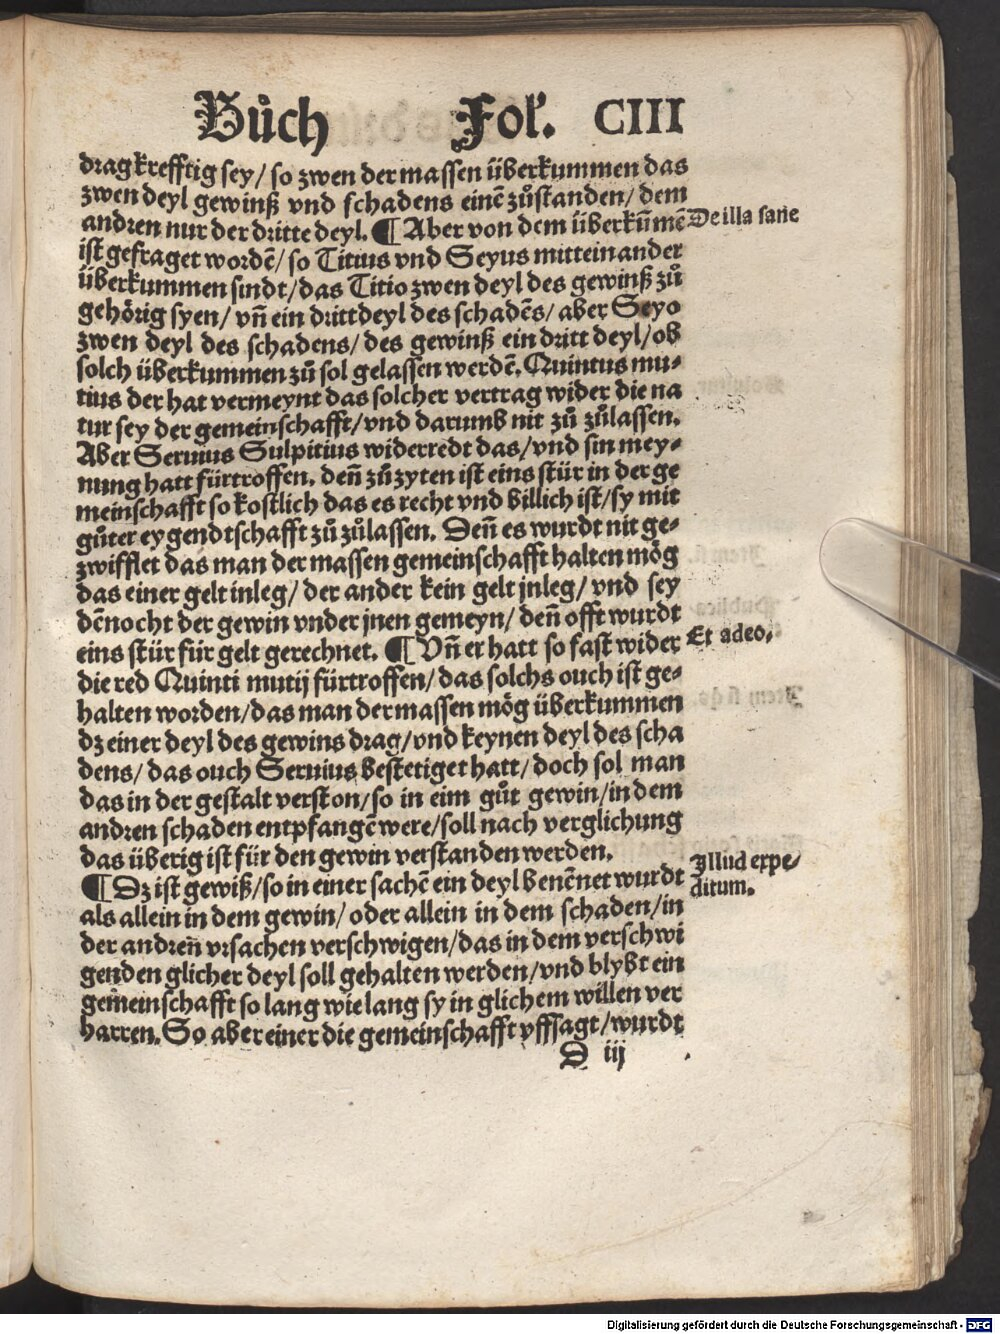 Bůch Fol'. CIII
drag krefftig sey/ so zwen der massen überkummen das
zwen deyl gewinß vnd schadens einē zůstanden/ dem
andren nur der dritte deyl. ¶ Aber von dem überkūmē
De illa sane
ist gefraget wordē/ so Titius vnd Seyus mitteinander
überkummen sindt/ das Titio zwen deyl des gewinß zů
gehörig syen/ vñ ein drittdeyl des schadēs/ aber Seyo
zwen deyl des schadens/ des gewinß ein dritt deyl/ ob
solch überkummen zů sol gelassen werdē. Quintus mu-
tius der hat vermeynt das solcher vertrag wider die na
tur sey der gemeinschafft/ vnd darumb nit zů zůlassen.
Aber Seruius Sulpitius widerredt das/ vnd sin mey-
nung hatt fürtroffen. deñ zů zyten ist eins stür in der ge
meinschafft so kostlich das es recht vnd billich ist/ sy mit
gůter eygendtschafft zů zůlassen. Deñ es wurdt nit ge-
zwifflet das man der massen gemeinschafft halten mög
das einer gelt inleg/ der ander kein gelt jnleg/ vnd sey
dēnocht der gewin vnder jnen gemeyn/ deñ offt wurdt
eins stür für gelt gerechnet. ¶ Vñ er hatt so fast wider
Et adeo.
die red Quinti mutij fürtroffen/ das solchs ouch ist ge-
halten worden/ das man der massen mög überkummen
dz einer deyl des gewins drag/ vnd keynen deyl des scha
dens/ das ouch Seruius bestetiget hatt/ doch sol man
das in der gestalt verston/ so in eim gůt gewin/ in dem
andren schaden entpfangē were/ soll nach verglichung
das überig ist für den gewin verstanden werden.
¶ Dz ist gewiß/ so in einer sachē ein deyl benēnet wurdt
Illud expe/
ditum.
als allein in dem gewin/ oder allein in dem schaden/ in
der andreñ vrsachen verschwigen/ das in dem verschwi
genden glicher deyl soll gehalten werden/ vnd blybt ein
gemeinschafft so lang wie lang sy in glichem willen ver
harren. So aber einer die gemeinschafft vffsagt/ wurdt
D iij
Digitalisierung gefördert durch die Deutsche Forschungsgemeinschaft - DFG